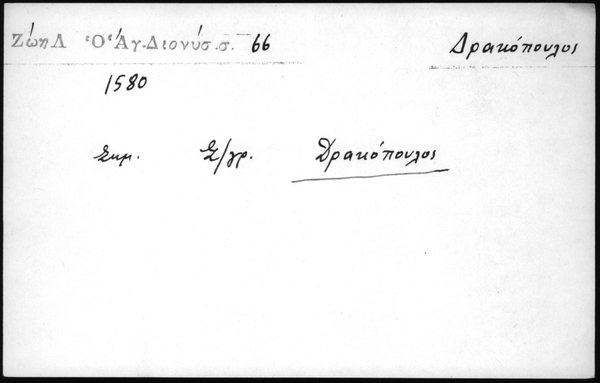 Ζώη Λ Ὁ Ἁγ. Διονύσ. σ. 66 Δρακόπουλος
1580
Σημ. Σ/γρ. Δρακόπουλος